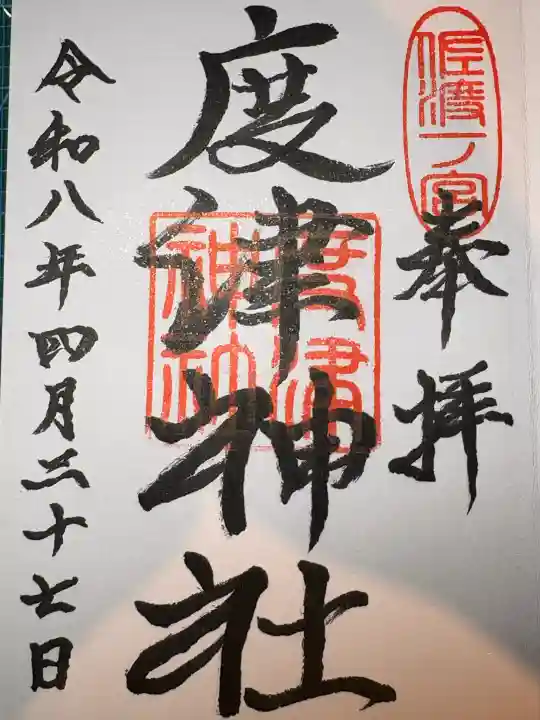 佐渡一ノ宮
奉拝
度津神社
度津
神社
令和八年四月二十七日